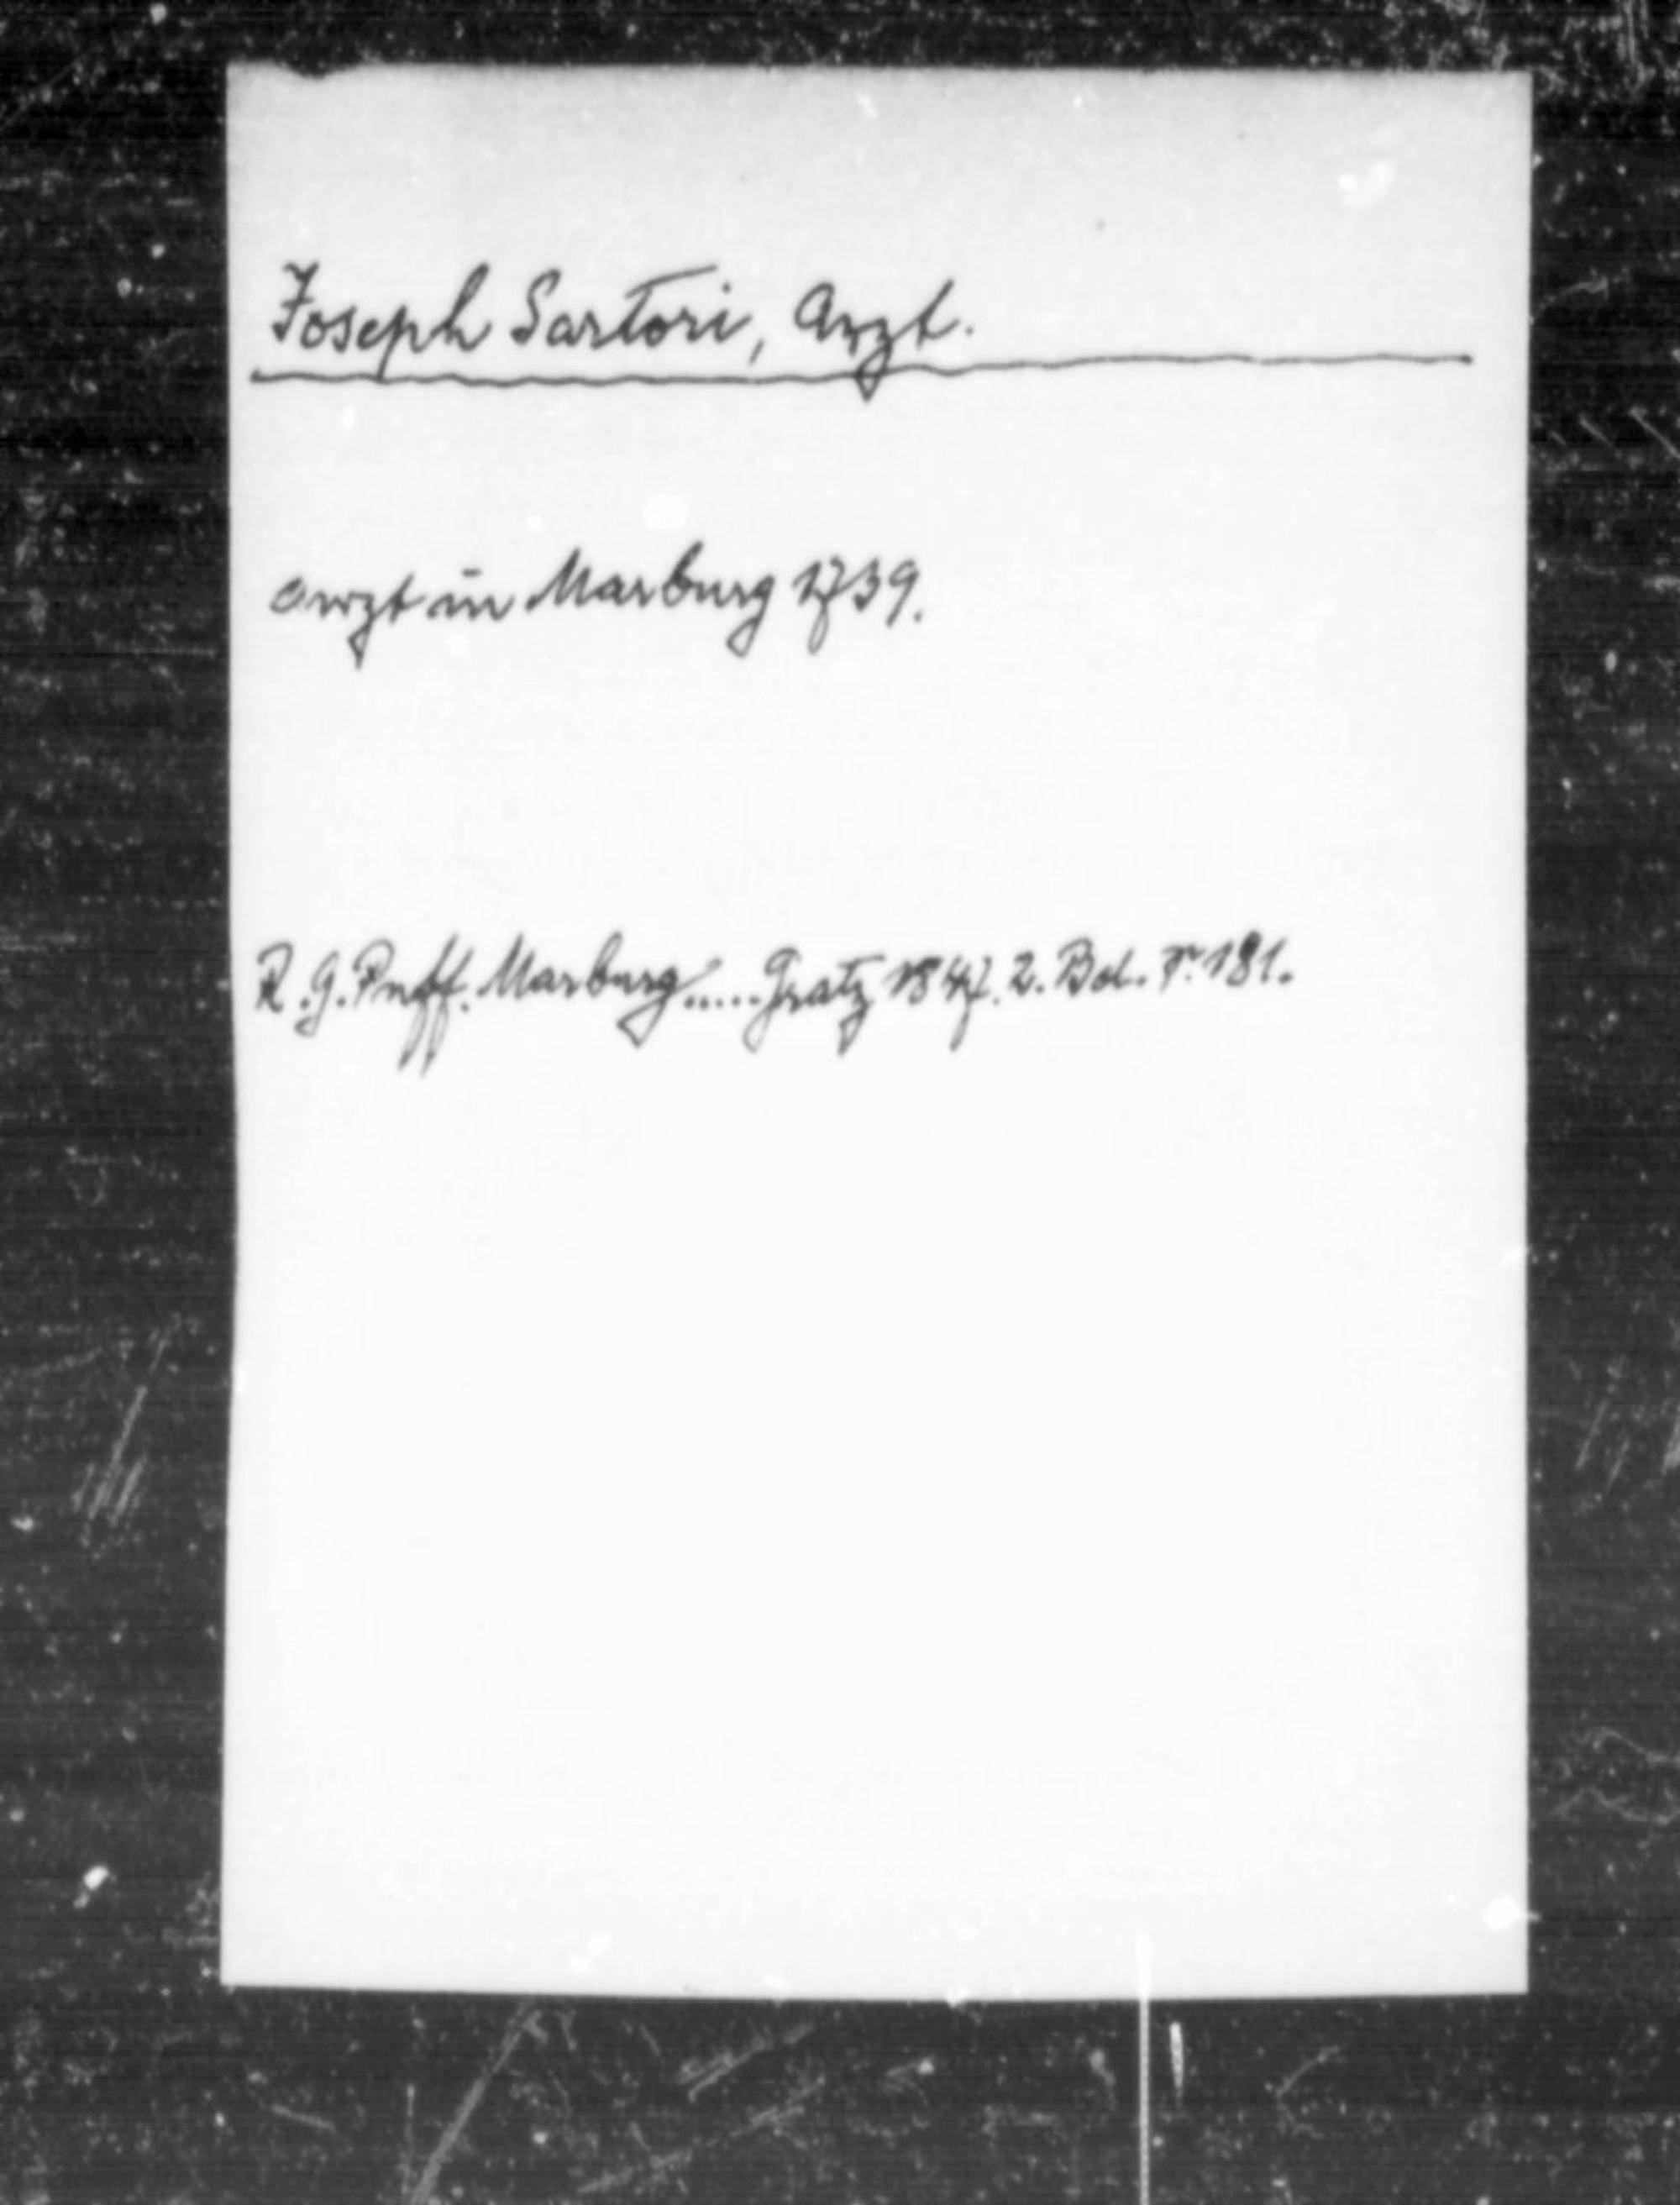 Joseph Sartori, Arzt.
Arzt in Marburg 1739.
R. G. Puff. Marburg..... Gratz 1847. 2. Bd. p. 181.